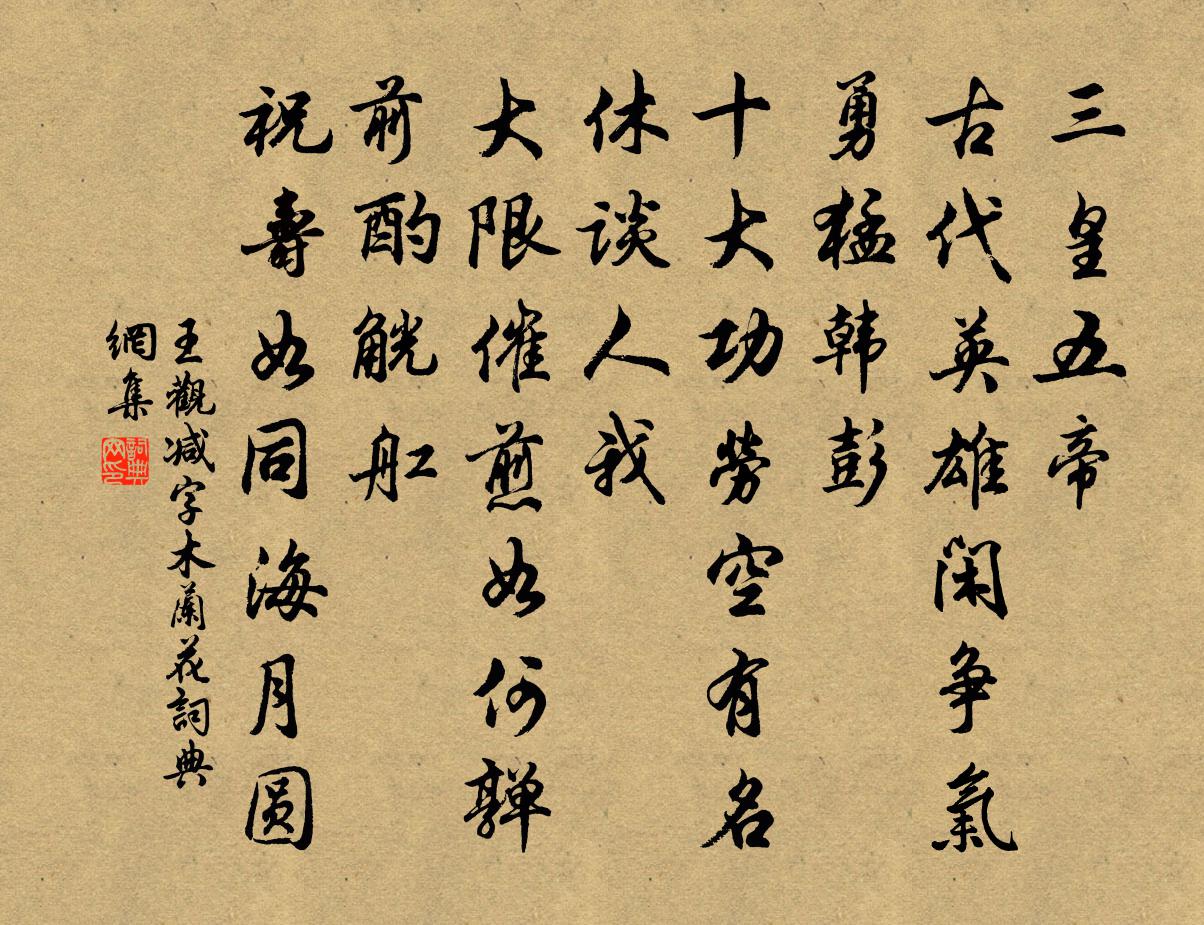 三皇五帝
古代英雄闲争氣
勇猛韩彭
十大功勞空有名
休谈人我
大限催煎如何亸
前酌觥舡
祝壽如同海月圆
王觀减字木蘭花詞典
網集
詞典
网印